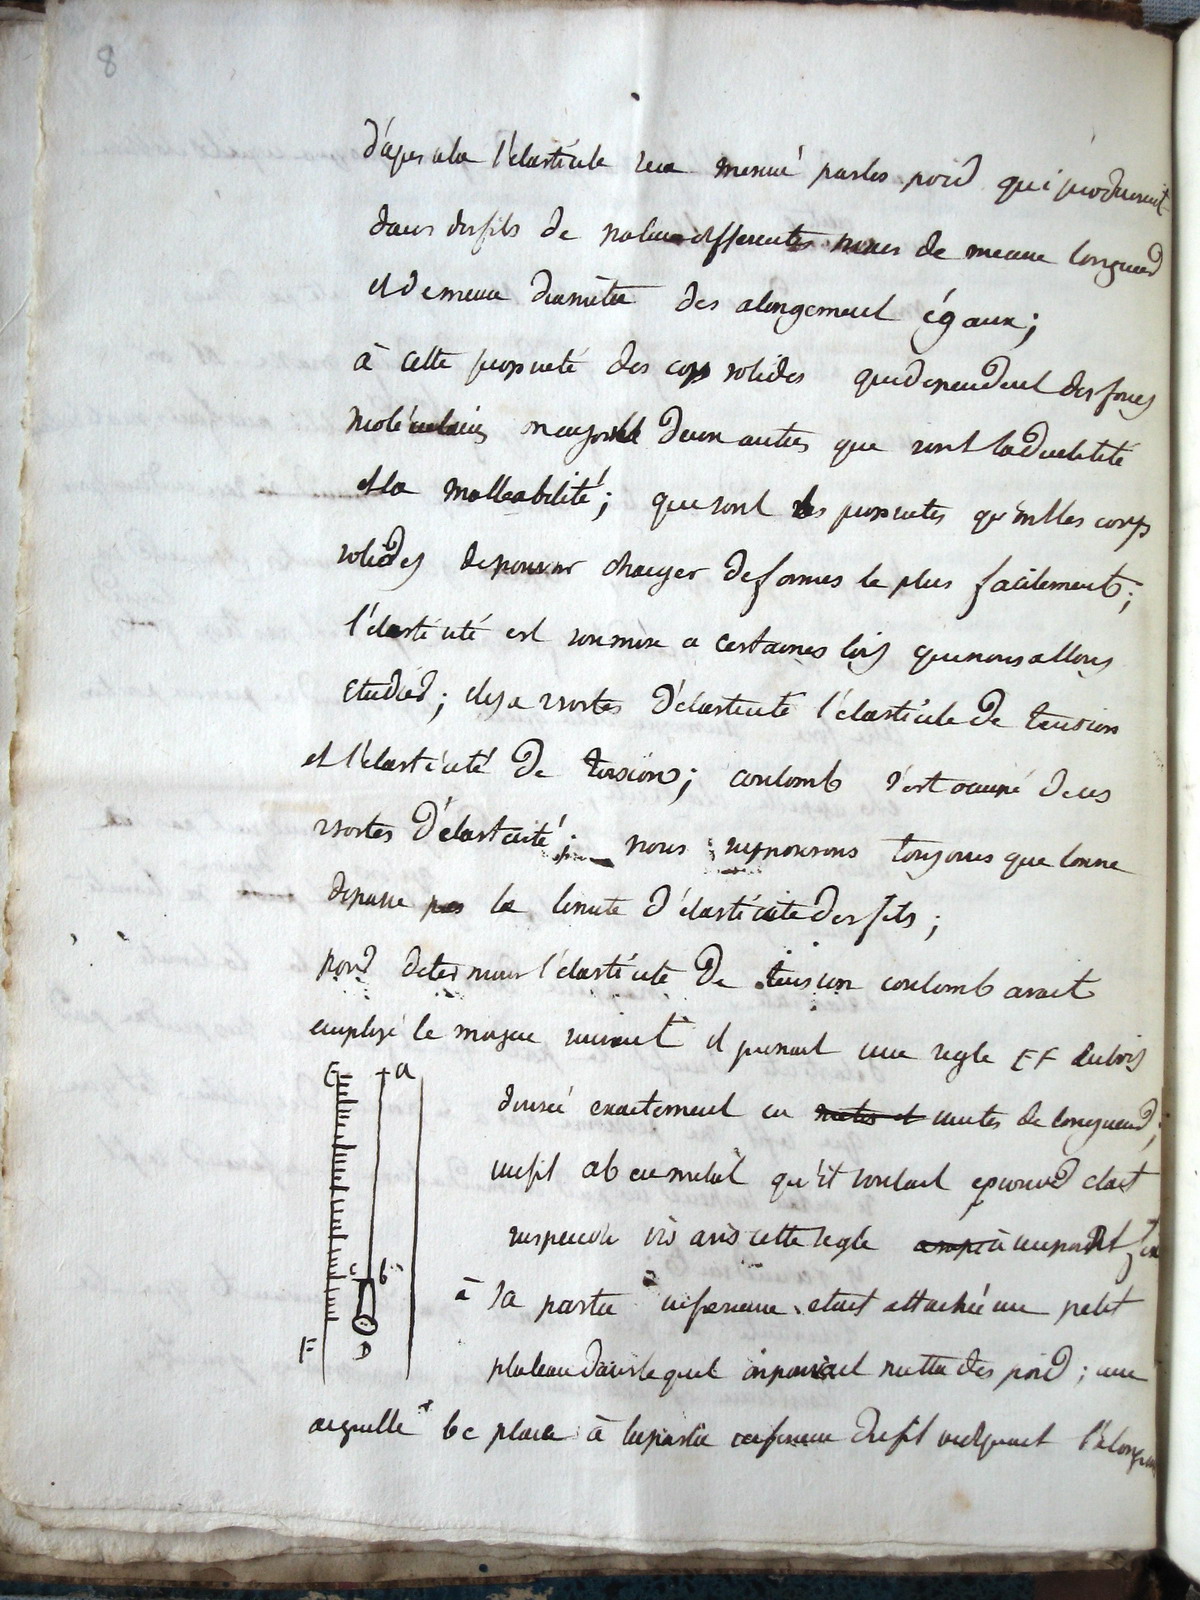 8
d'apres cela l'élasticité sera mesuré par les poid qui produiroient
dans des fils de nature differentes de meme longueur
et de meme diamètre des alongement égaux;
à cette propriété des corps solides qui dependent des forces
moléculaires on ajoute deux autres que sont la ductilité
et la malleabilité; que sont les proprietes qu'ont les corps
solides de pouvoir changer de formes le plus facilement;
l'élasticité est soumise a certaines lois que nous allons
etudier; il y a 2 sortes d'élasticité l'élasticité de tension
et l'élasticité de torsion; coulomb s'est occupé de ces
2 sortes d'élasticité; nous supposerons toujours que l'on ne
depasse pas la limite d'élasticité des fils;
pour determiner l'élasticité de tension coulomb avait
employé le moyen suivant il prenait une regle EF de bois
E a
divisé exactement en metres et unites de longueur;
un fil ab en metal qu'il voulait eprouver etait
suspendu vis avis cette regle à un point fixe
c b
à sa partie inferieure etait attachée un petit
F D
plateau dans lequel on pouvait mettre des poid; une
aiguille bc placé à la partie inferieure du fil indiquait l'alongem